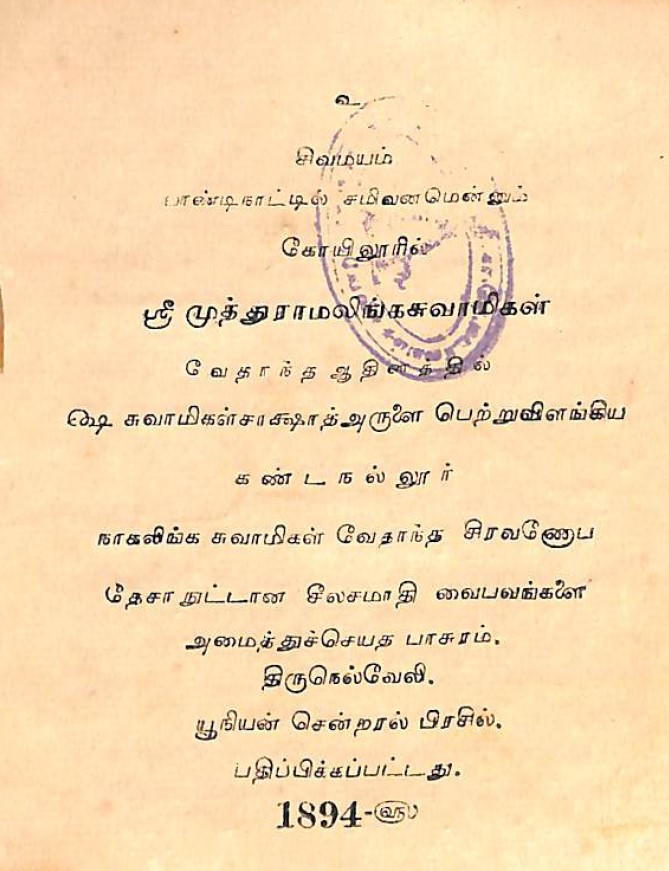 உ
சிவமயம்
பாண்டிநாட்டில் சமிவனமென்னும்
கோயிலூரில்
ஸ்ரீ முத்துராமலிங்கசுவாமிகள்
வேதாந்த ஆதினத்தில்
௸ சுவாமிகள்சாக்ஷாத்அருளை பெற்றுவிளங்கிய
கண்டநல்லூர்
நாகலிங்க சுவாமிகள் வேதாந்த சிரவணோப
தேசாநுட்டான சீலசமாதி வைபவங்களை
அமைத்துச்செயத பாசுரம்.
திருநெல்வேலி.
யூநியன் சென்றரல் பிரசில்.
பதிப்பிக்கப்பட்டது.
1894-௵